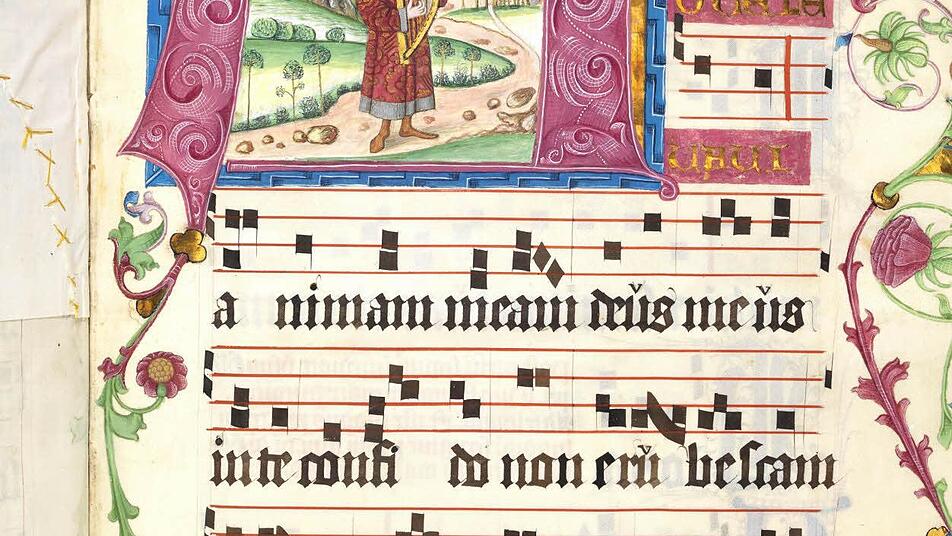 uaui
a nimam meam deus meus
in te confi do non erubescam